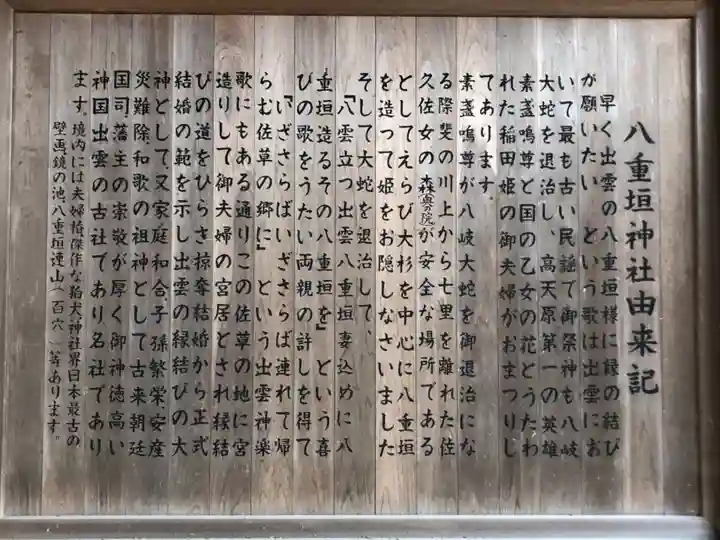 八重垣神社由来記
早く出雲の八重垣様に縁の結び
が願いたい、という歌は出雲にお
いて最も古い民謡で御祭神も八岐
大蛇を退治し、高天原第一の英雄
素盞嗚尊と国の乙女の花とうたわ
れた稲田姫の御夫婦がおまつりし
てあります。
素盞嗚尊が八岐大蛇を御退治にな
る際斐の川上から七里を離れた佐
久佐女の森(奥の院)が安全な場所である
としてえらび大杉を中心に八重垣
を造って姫をお隠しなさいました
そして大蛇を退治して、
「八雲立つ出雲八重垣妻込めに八
重垣造るその八重垣を」という喜
びの歌をうたい両親の許しを得て
「いざさらばいざさらば連れて帰
らむ佐草の郷に」という出雲神楽
歌にもある通りこの佐草の地に宮
造りして御夫婦の宮居とされ縁結
びの道をひらき掠奪結婚から正式
結婚の範を示し出雲の縁結びの大
神として、又家庭和合子孫繁栄安産
災難除、和歌の祖神として古来朝廷
国司藩主の崇敬が厚く御神徳高い
神国出雲の古社であり名社であり
ます。境内には夫婦椿傑作な狛犬、神社界日本最古の
壁画、鏡の池、八重垣連山(百穴)等あります。